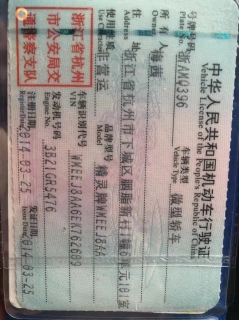 中华人民共和国机动车行驶证
Vehicle License of the People's Republic of China
号牌号码 浙AM0396 车辆类型 微型轿车
Plate No. Vehicle Type
所有人 海茜
Owner
住址 浙江省杭州市下城区胭脂新村1幢6单元101室
Address
使用性质 非营运 品牌型号 精灵牌WMEEJ8AA
Model
浙江省杭州
市公安局交
通警察支队
车辆识别代号 WMEEJ8AA6EK762689
VIN
发动机号码 3B21GR5476
Engine No.
注册日期 2014-03-25 发证日期 2014-03-25